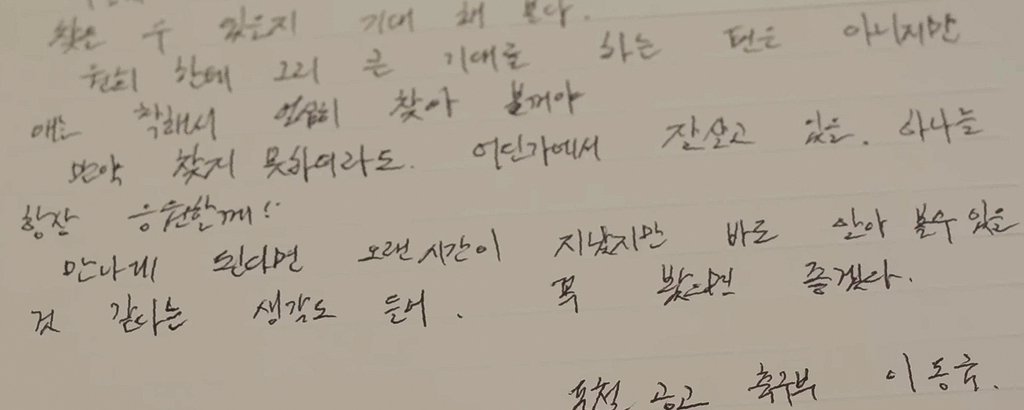 찾을 수 있을지 기대 해 본다.
원희 한테 그리 큰 기대를 하는 편은 아니지만
애는 착해서 열심히 찾아 볼꺼야
만약 찾지 못하더라도. 어딘가에서 잘살고 있을. 하나를
항상 응원할께!
만나게 된다면 오랜시간이 지났지만 바로 알아 볼수있을
것 같다는 생각도 들어. 꼭 봤으면 좋겠다.
공고 축구부 이동국.